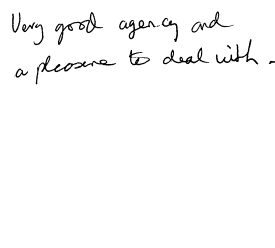 Very good agency and
a pleasure to deal with.